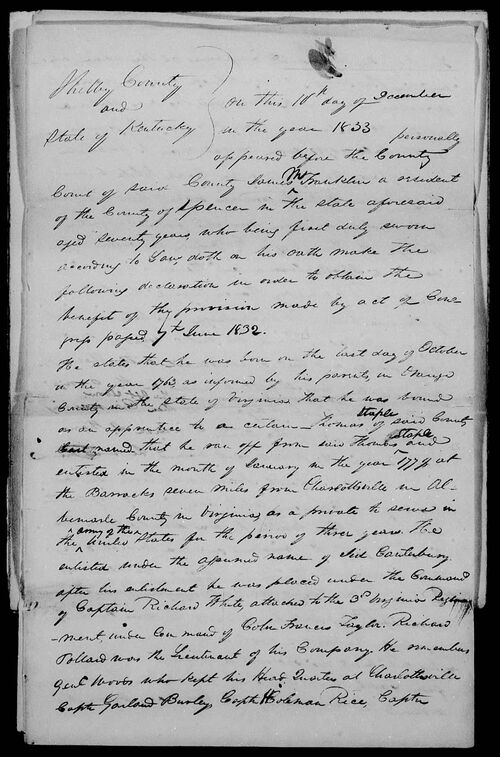 Shelby County
and
State of Kentucky
On this 10th day of December
in the year 1833 personally
appeared before the County
Court of said County James McFranklin a resident
of the County of Spencer in the state aforesaid
aged seventy years, who being first duly sworn
according to Law doth on his oath make the
following declaration in order to obtain the
benefit of the provision made by act of Con
gress passed 7th June 1832.
He states that he was born on the last day of October
in the year 1763 as informed by his parents, in Orange
County in the State of Virginia that he was bound
as an apprentice to a certain Thomas staple of said County
named that he run off from said Thomas staple and
enlisted in the month of January in the year at
the Barracks seven miles from Charlottsville in Al
bemarle County in Virginia as a private to serve in
the army of the United States for the period of three years. He
enlisted under the assumed name of Canterbury.
after his enlistment he was placed under the Command
of Captain Richard White, attached to the 3d Virginia
ment, under Command of Coln Francis Taylor. Richard
Pollard was the Lieutenant of his Company. He remembers
Genl Woods who kept his Head Quaters at Charlottsville
Captn Garland Burley Captn Holeman Rice, Captn